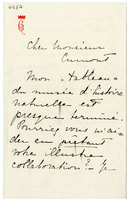 Cher Monsieur
Cumont
Mon "tableau"
du musée d'histoire
naturelle est
presque terminé.
Pourriez vous m'ai-
der en prêtant
votre illustre
collaboration. Je